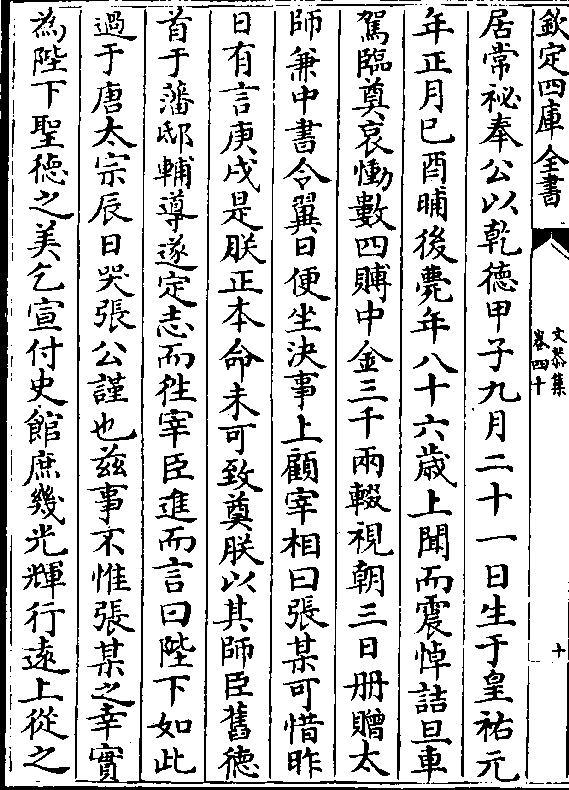 欽定四庫全書
文恭集
卷四十
十
居常祕奉公以乾德甲子九月二十一日生于皇祐元
年正月己酉晡後薨年八十六歳上聞而震悼詰旦車
駕臨奠哀慟數四賻中金三千兩輟視朝三日册贈太
師兼中書令翼日便坐決事上顧宰相曰張某可惜昨
日有言庚戌是朕正本命未可致奠朕以其師臣舊德
首于藩邸輔導遂定志而徃宰臣進而言曰陛下如此
過于唐太宗辰日哭張公謹也兹事不惟張某之幸實
為陛下聖徳之美乞宣付史館庶幾光輝行逺上從之